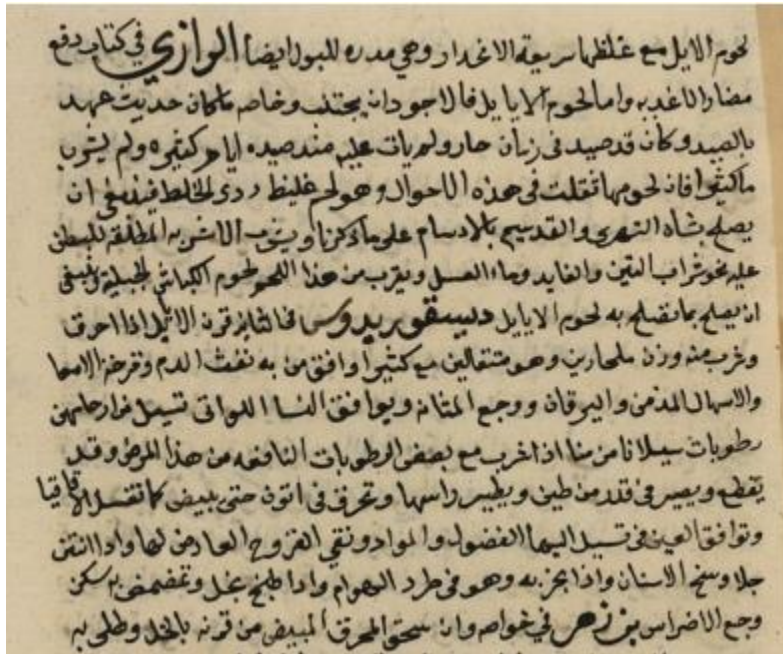 لحوم الايل مع غلظها سريعة الانحدار وهي مدره للبول ايضا الرازي في كتاب دفع
مضار الاغذيه واما لحوم الايايل فالاجود ان يجتنب وخاصه ما كان حديث عهد
بالصيد وكان قد صيد في زمان حار ولم يات عليه منذ صيده ايام كثيره ولم يشرب
ما كثيرا فان لحومها ثقلت في هذه الاحوال وهو لحم غليظ ردى الخلط فينبغي ان
يصلح بشاه التهري والقديسم بالادسام على ما ذكرنا ويشرب الاشربه المطلقه للبطن
عليه نحو شراب التين والفانيد وماء العسل ويقرب من هذا اللحم لحوم الكباش الجبليه وينبغي
ان يصلح بما تصلح به لحوم الايايل ديسقوريدوس في الثانيه قرن الايل اذا احرق
وشرب منه وزن ملحارين وهو مثقالين مع كثيرا وافق من به نفث الدم وقرحة الامعا
والاسهال المزمن واليرقان ووجع المثانه ويوافق النسا اللواتي تسيل من ارحامهن
رطوبات سيلانا مزمنا اذا شرب مع بعض الرطوبات النافعه من هذا المرض وقد
يقطع ويصير في قدر من طين ويطين راسها وتحرق في اتون حتى يبيض كما تغسل الاقاقيا
وتوافق العين في تسيل اليها الفضول والمواد ونقي القروح العارض لها واذا استن
جلا وسخ الاسنان واذا بخر به وهو في طرد الهوام واذا طبخ بخل وتمضمض به سكن
وجع الاضراس بن زهر في خواصه وان سحق المحرق المبيض من قرنه بالخل وطلى به